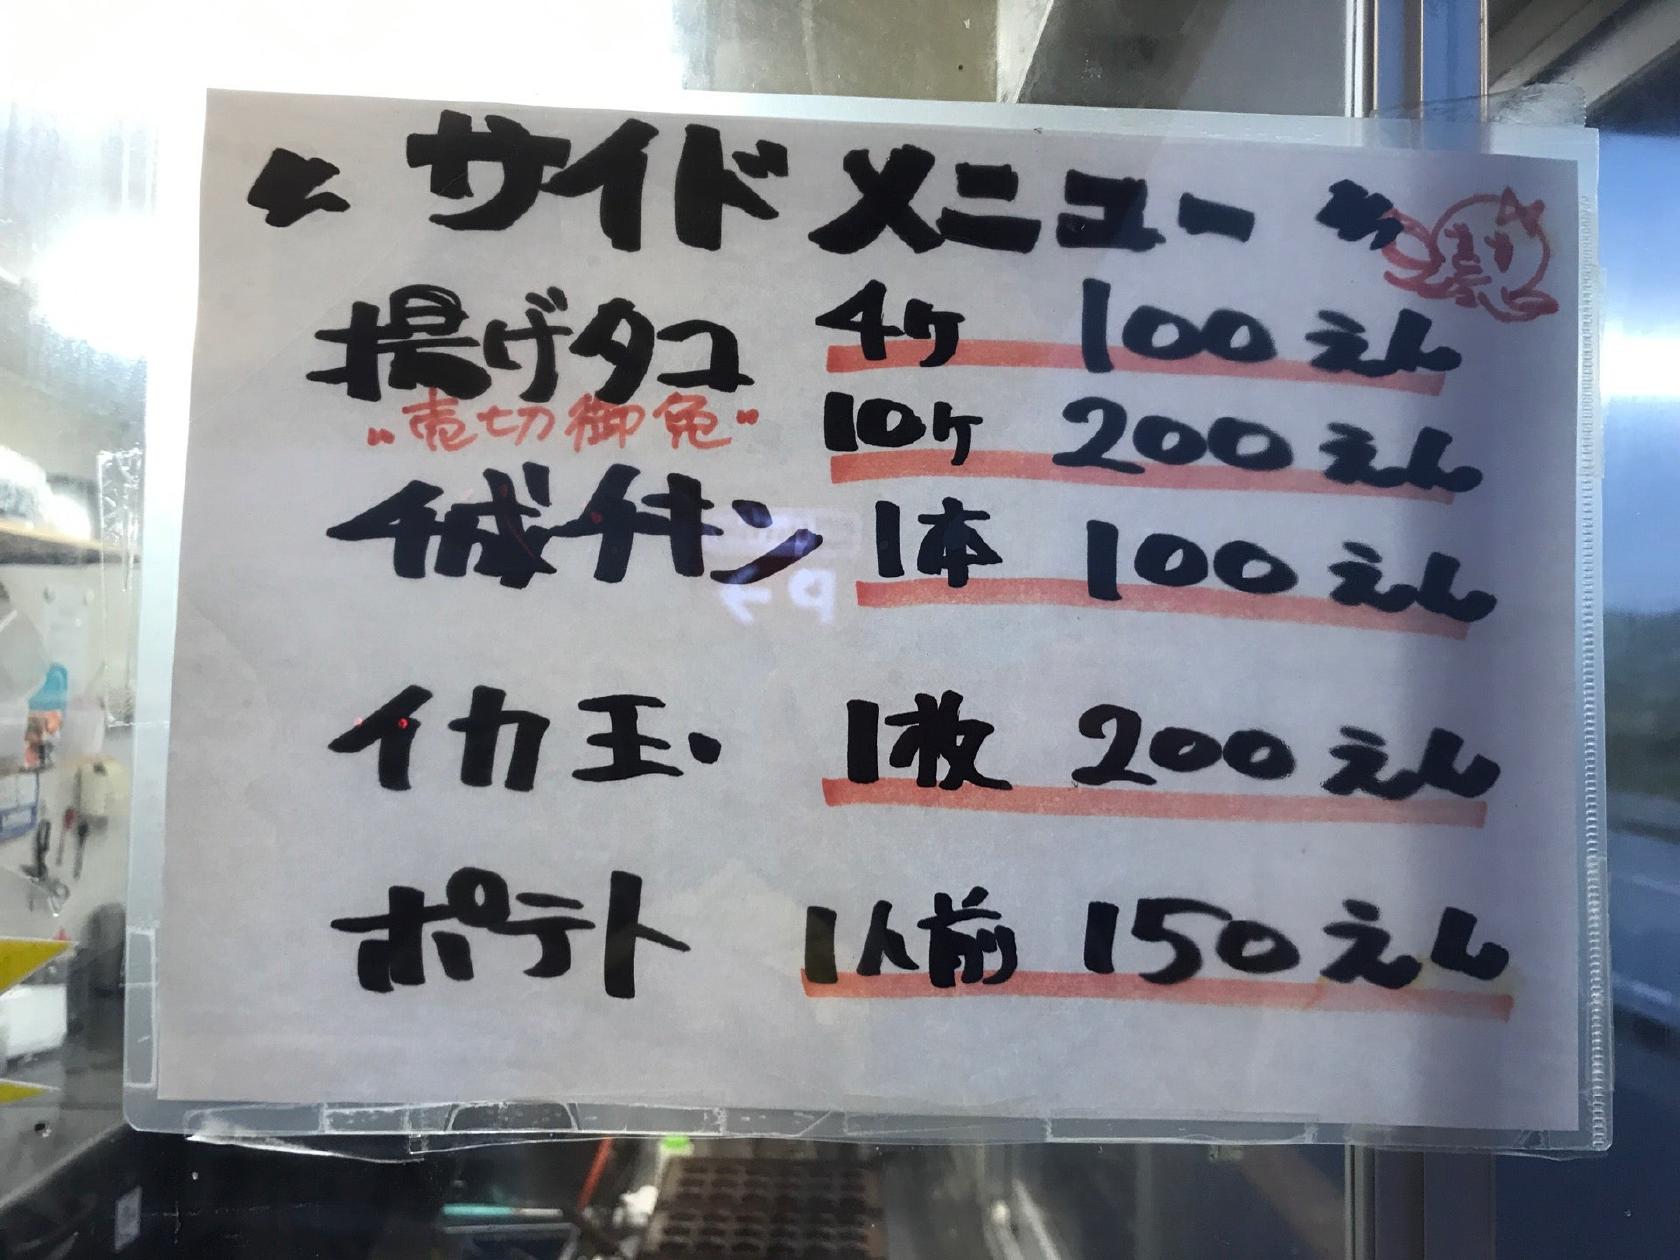 サイドメニュー
揚げタコ 4ケ 100えん
"売切御免" 10ケ 200えん
チキン 1本 100えん
イカ玉 1枚 200えん
ポテト 1人前 150えん